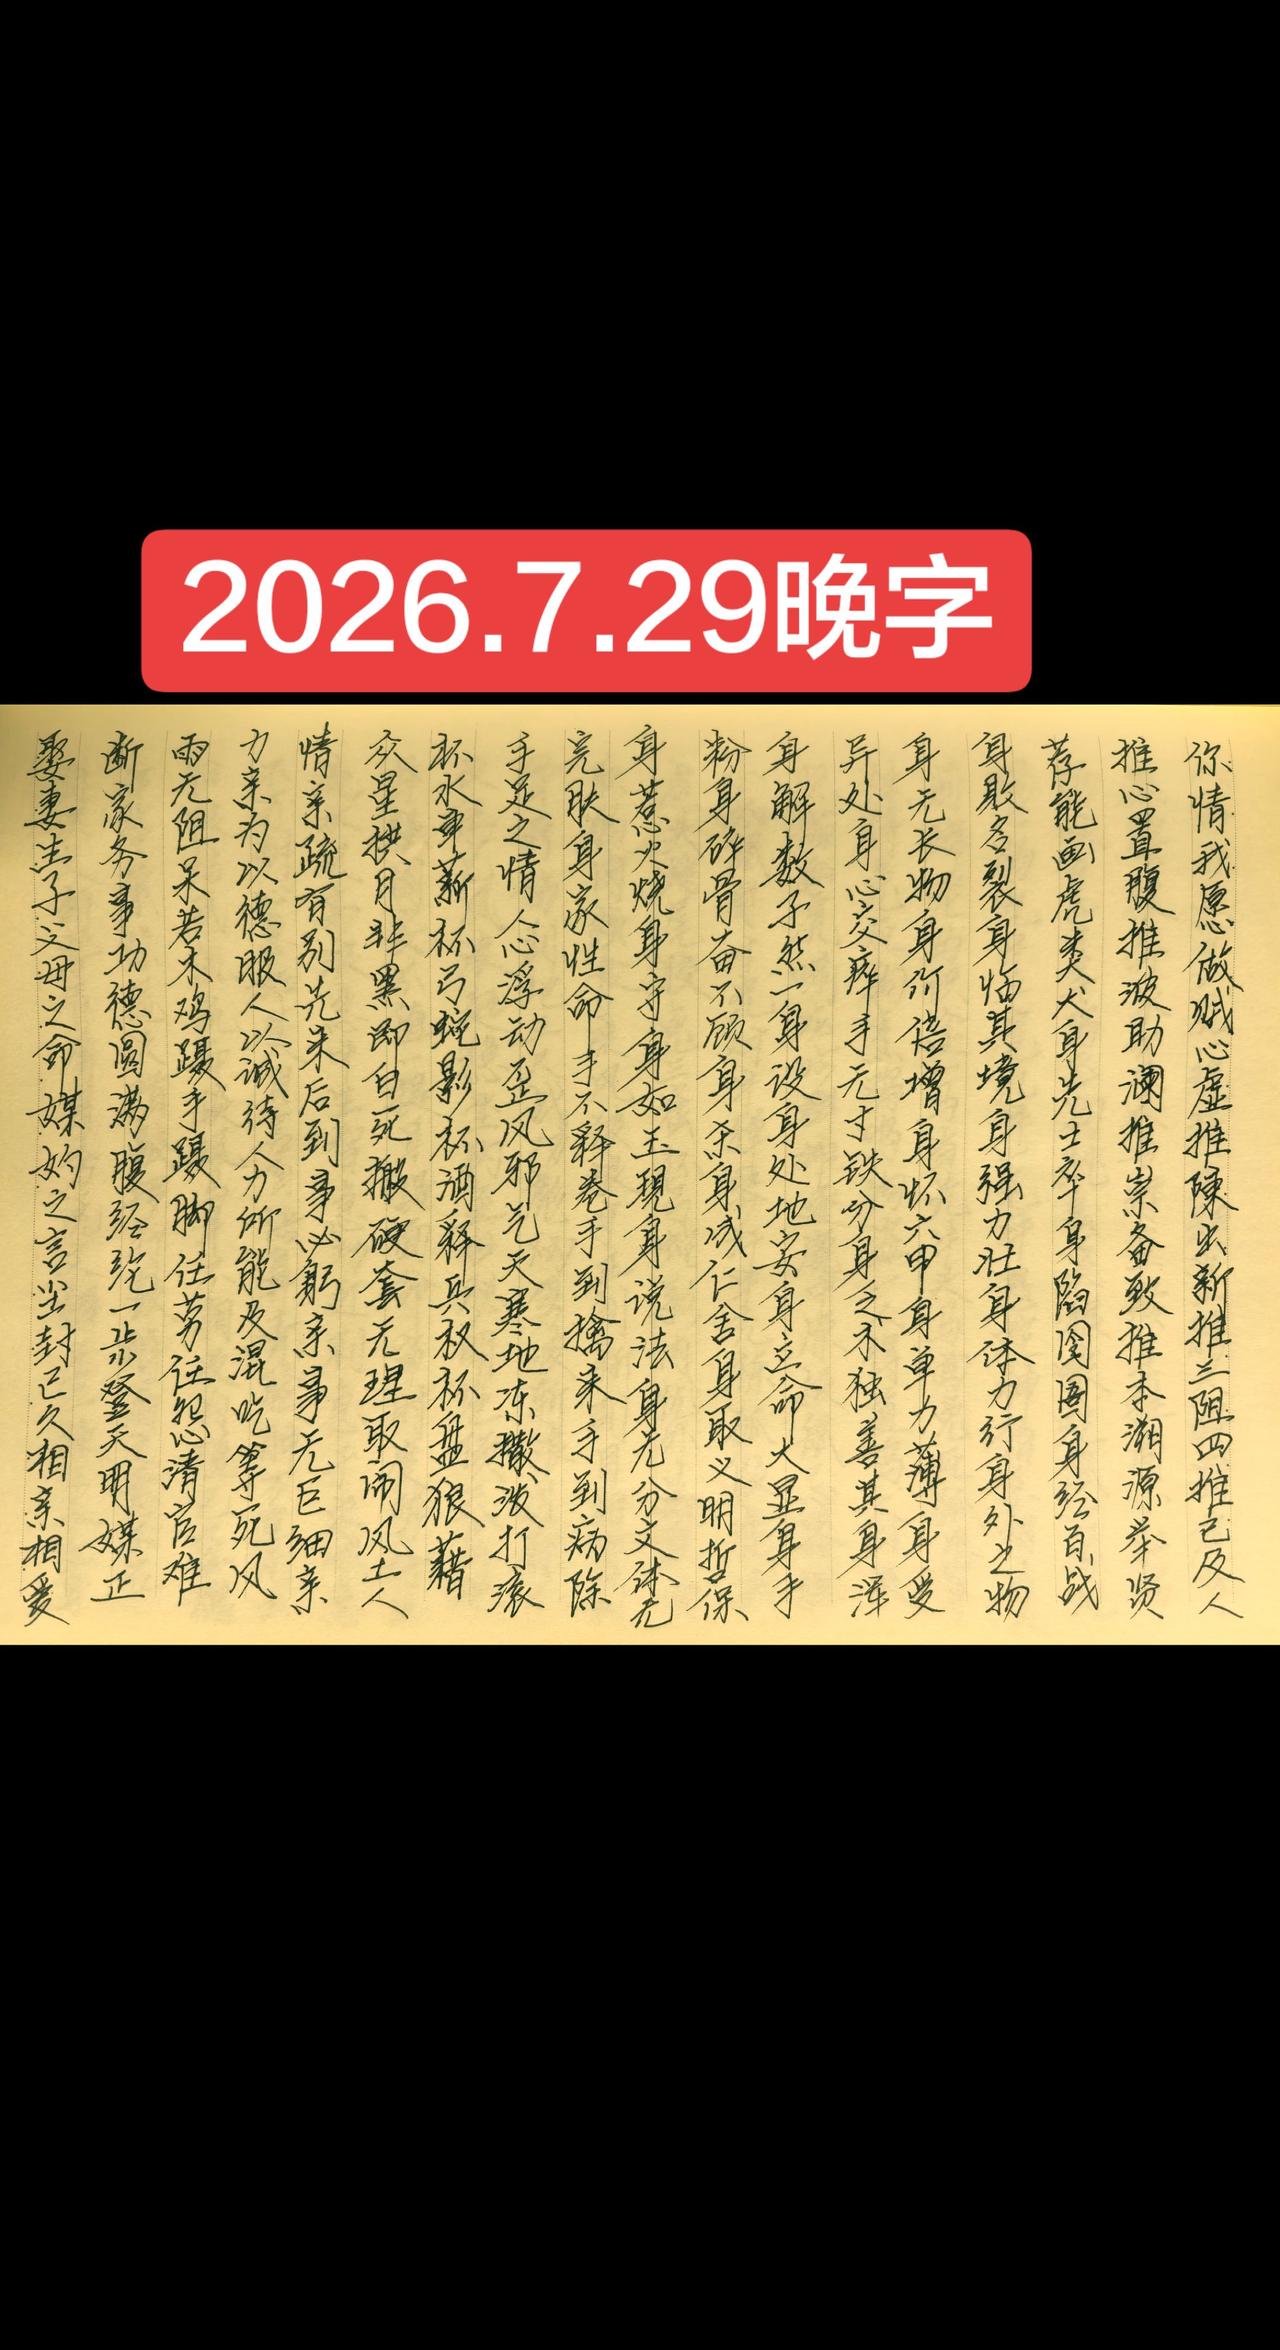 2026.7.29晚字
你情我愿做贼心虚推陈出新推三阻四推己及人
推心置腹推波助澜推崇备致推本溯源举贤
荐能画虎类犬身先士卒身陷囹圄身经百战
身败名裂身临其境身强力壮身体力行身外之物
身无长物身价倍增身怀六甲身单力薄身受
异处身心交瘁手无寸铁分身乏术独善其身浑
身解数孑然一身设身处地安身立命大显身手
粉身碎骨奋不顾身杀身成仁舍身取义明哲保
身惹火烧身守身如玉现身说法身无分文体无
完肤身家性命手不释卷手到擒来手到病除
手足之情人心浮动歪风邪气天寒地冻撒泼打滚
杯水车薪杯弓蛇影杯酒释兵权杯盘狼藉
众星拱月非黑即白死搬硬套无理取闹风土人
情亲疏有别先来后到事必躬亲事无巨细亲
力亲为以德服人以诚待人力所能及混吃等死风
雨无阻呆若木鸡蹑手蹑脚任劳任怨清官难
断家务事功德圆满腹经纶一步登天明媒正
娶妻生子父母之命媒妁之言尘封已久相亲相爱